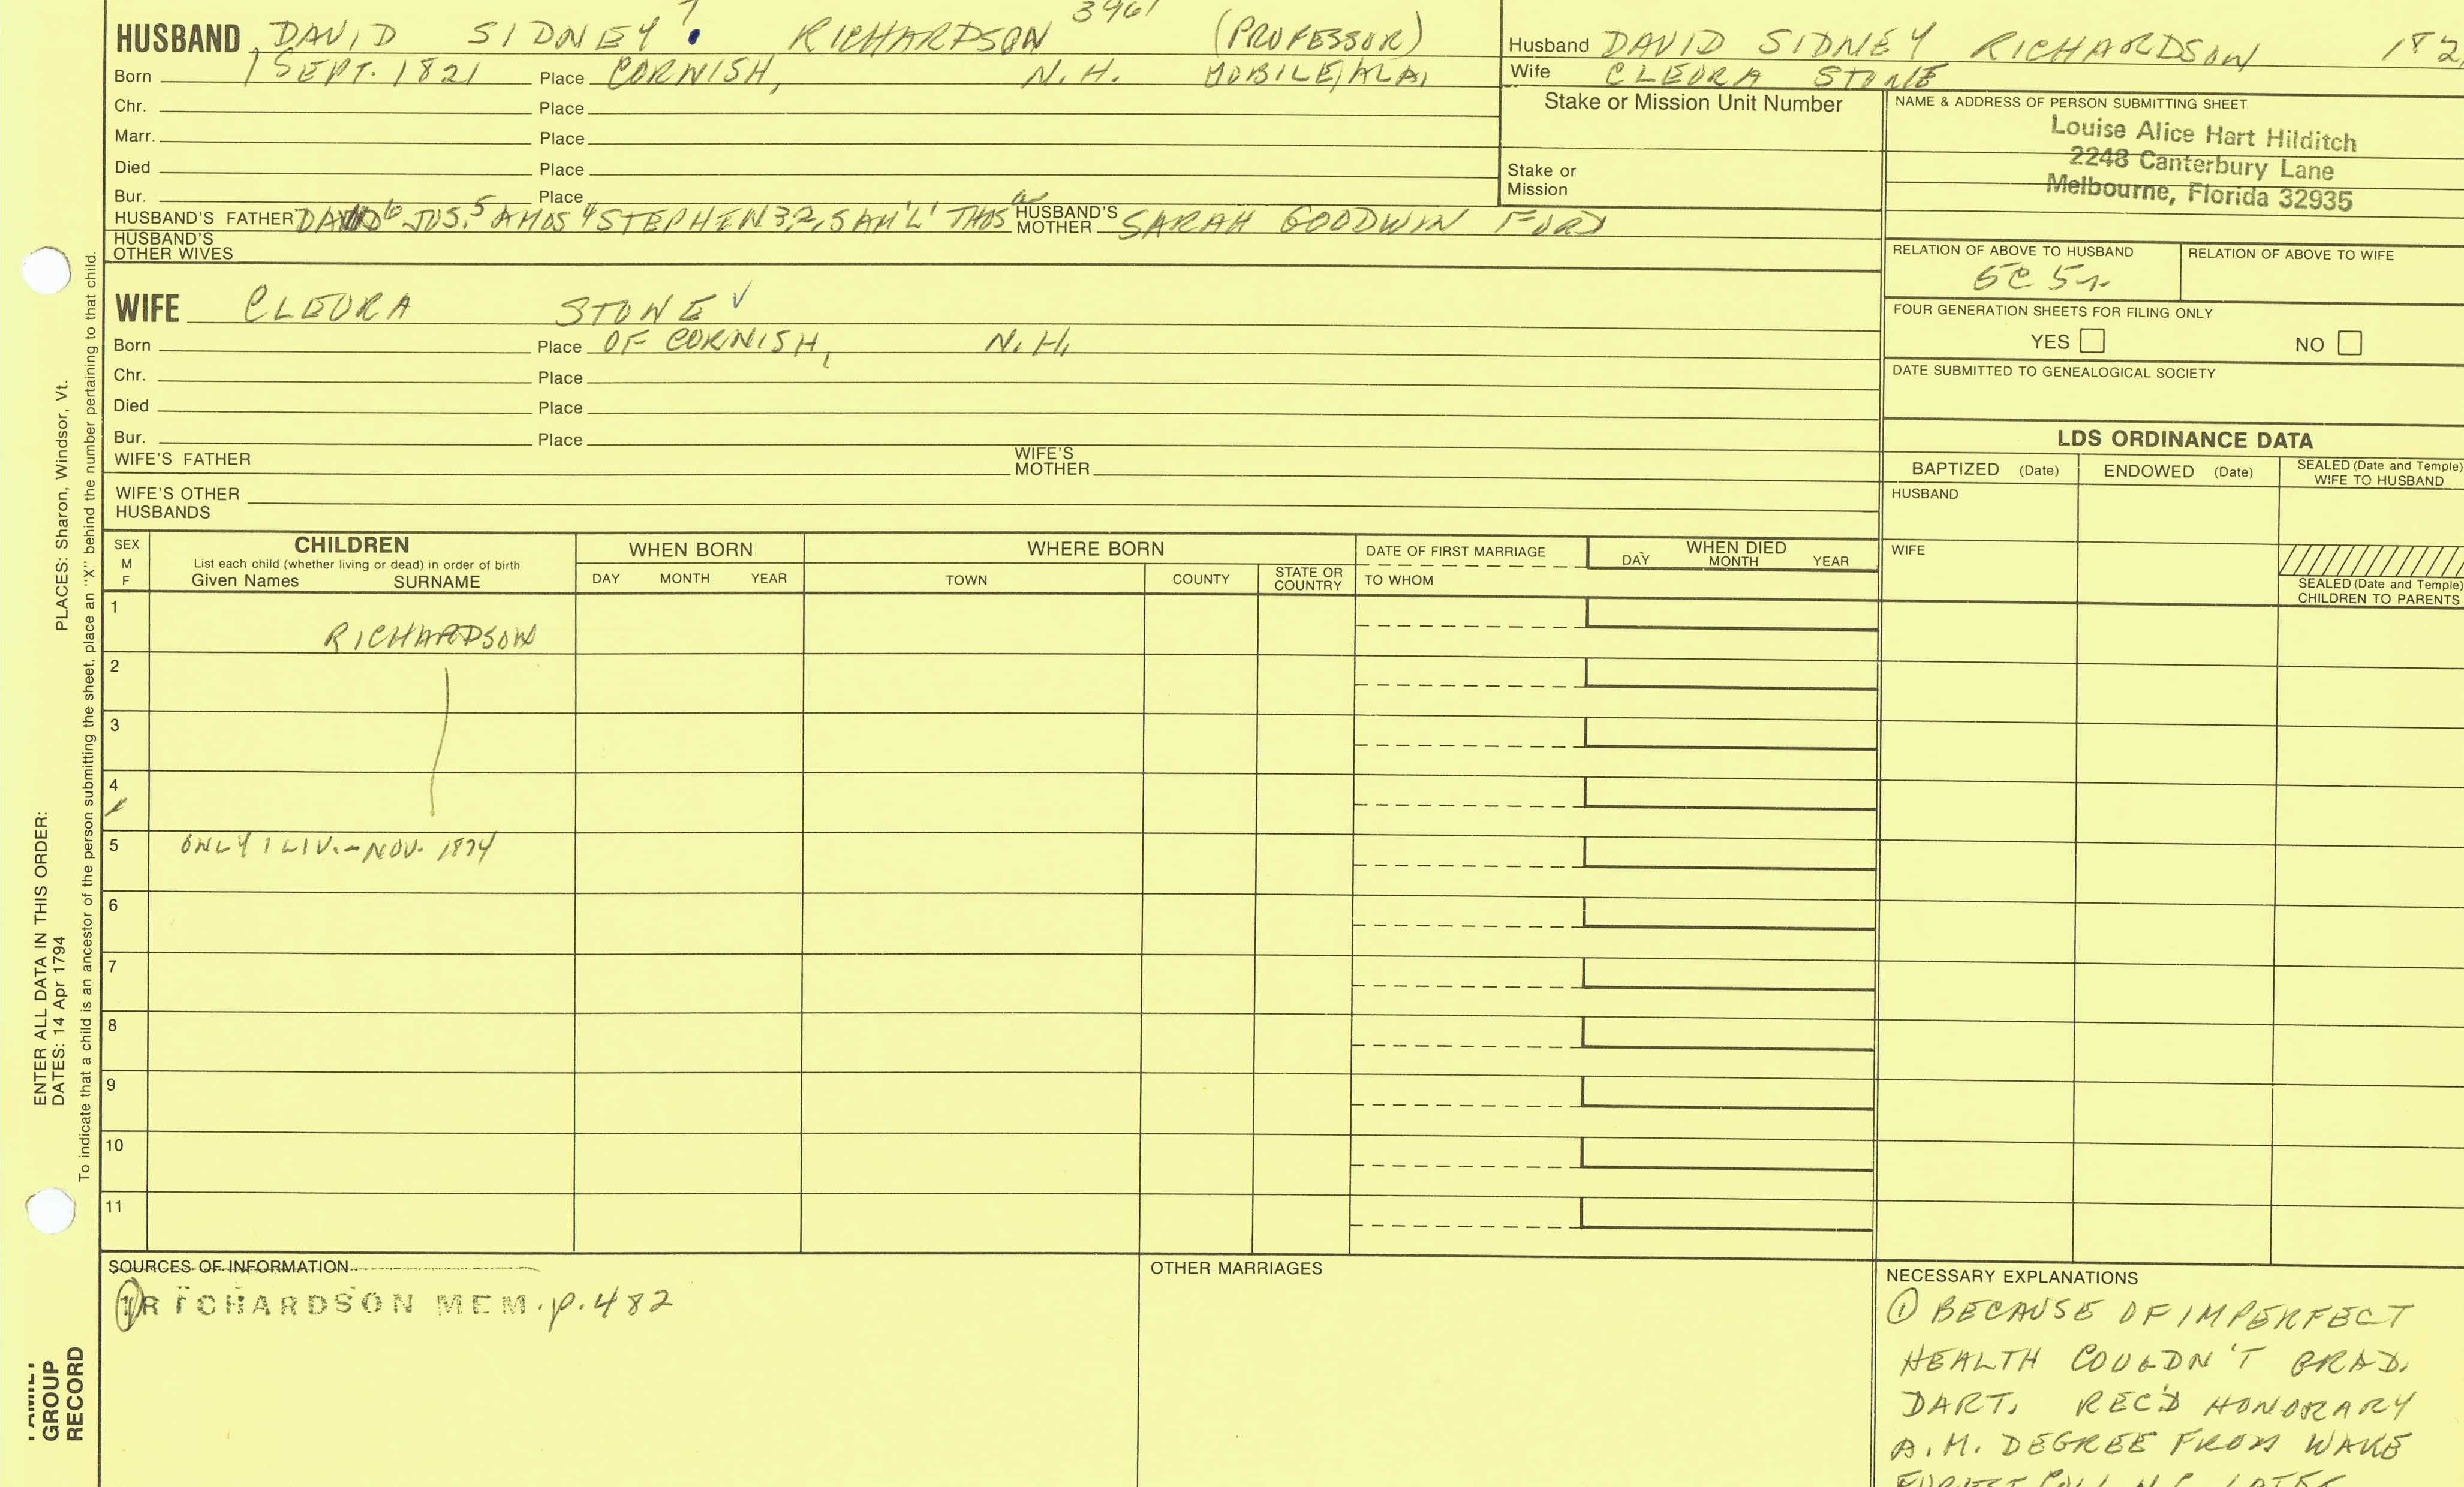 HUSBAND DAVID SIDNEY 7 RICHARDSON 3961 (PROFESSOR)
Born 1 SEPT. 1821 Place CORNISH, N.H. MOBILE, ALA,
Chr. Place
Marr. Place
Died Place
Bur. Place
HUSBAND'S FATHER DAVID 6 JOS. 5 AMOS 4 STEPHEN 3 2, SAM'L' THOS HUSBAND'S MOTHER SARAH GOODWIN FORD
HUSBAND'S OTHER WIVES
Husband DAVID SIDNEY RICHARDSON 182
Wife CLEORA STONE
Stake or Mission Unit Number
Stake or Mission
NAME & ADDRESS OF PERSON SUBMITTING SHEET
Louise Alice Hart Hilditch
2248 Canterbury Lane
Melbourne, Florida 32935
RELATION OF ABOVE TO HUSBAND
RELATION OF ABOVE TO WIFE
FOUR GENERATION SHEETS FOR FILING ONLY
YES NO
DATE SUBMITTED TO GENEALOGICAL SOCIETY
WIFE CLEORA STONE
Born Place OF CORNISH, N.H.
Chr. Place
Died Place
Bur. Place
WIFE'S FATHER WIFE'S MOTHER
WIFE'S OTHER HUSBANDS
LDS ORDINANCE DATA
BAPTIZED (Date) ENDOWED (Date) SEALED (Date and Temple) WIFE TO HUSBAND
HUSBAND
WIFE
SEALED (Date and Temple) CHILDREN TO PARENTS
SEX M F
CHILDREN
List each child (whether living or dead) in order of birth
Given Names SURNAME
WHEN BORN
DAY MONTH YEAR
WHERE BORN
TOWN COUNTY STATE OR COUNTRY
DATE OF FIRST MARRIAGE
TO WHOM
WHEN DIED
DAY MONTH YEAR
1 RICHARDSON
2
3
4
5 ONLY 1 LIV.- NOV. 1874
6
7
8
9
10
11
SOURCES OF INFORMATION
1 RICHARDSON MEM. p. 482
OTHER MARRIAGES
NECESSARY EXPLANATIONS
1 BECAUSE OF IMPERFECT
HEALTH COULDN'T GRAD.
DART. REC'D HONORARY
A.M. DEGREE FROM WAKE
ENTER ALL DATA IN THIS ORDER:
DATES: 14 Apr 1794 PLACES: Sharon, Windsor, Vt.
To indicate that a child is an ancestor of the person submitting the sheet, place an "X" behind the number pertaining to that child.
FAMILY
GROUP
RECORD